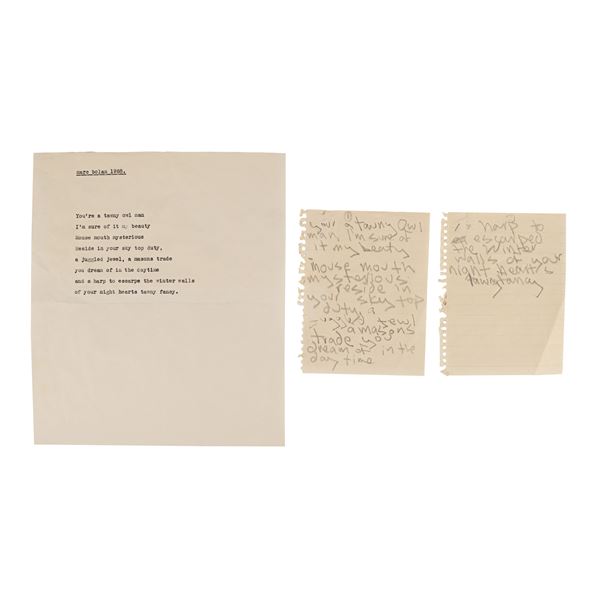 marc bolan 1968.
You're a tawny owl man
I'm sure of it my beauty
Mouse mouth mysterious
Reside in your sky top duty,
a juggled jewel, a masons trade
you dream of in the daytime
and a harp to escarpe the winter walls
of your night hearts tawny fancy.
①
a tawny Owl
man, I'm sure of
it my beauty
mouse mouth
mysterious
reside in
your sky top
duty a
jewel
a masons
trade you
dream of in the
day time
harp to
escarped
the winter
walls of your
night hearts
tawny fancy